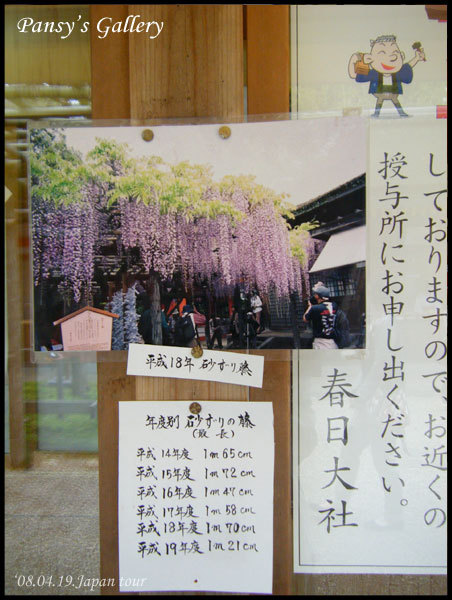 Pansy's Gallery
しておりますので、お近くの
授与所にお申し出ください。
春日大社
平成18年 砂ずり藤
年度別 砂ずりの藤
(最長)
平成14年度 1m65cm
平成15年度 1m72cm
平成16年度 1m47cm
平成17年度 1m58cm
平成18年度 1m70cm
平成19年度 1m21cm
'08.04.19.Japan tour